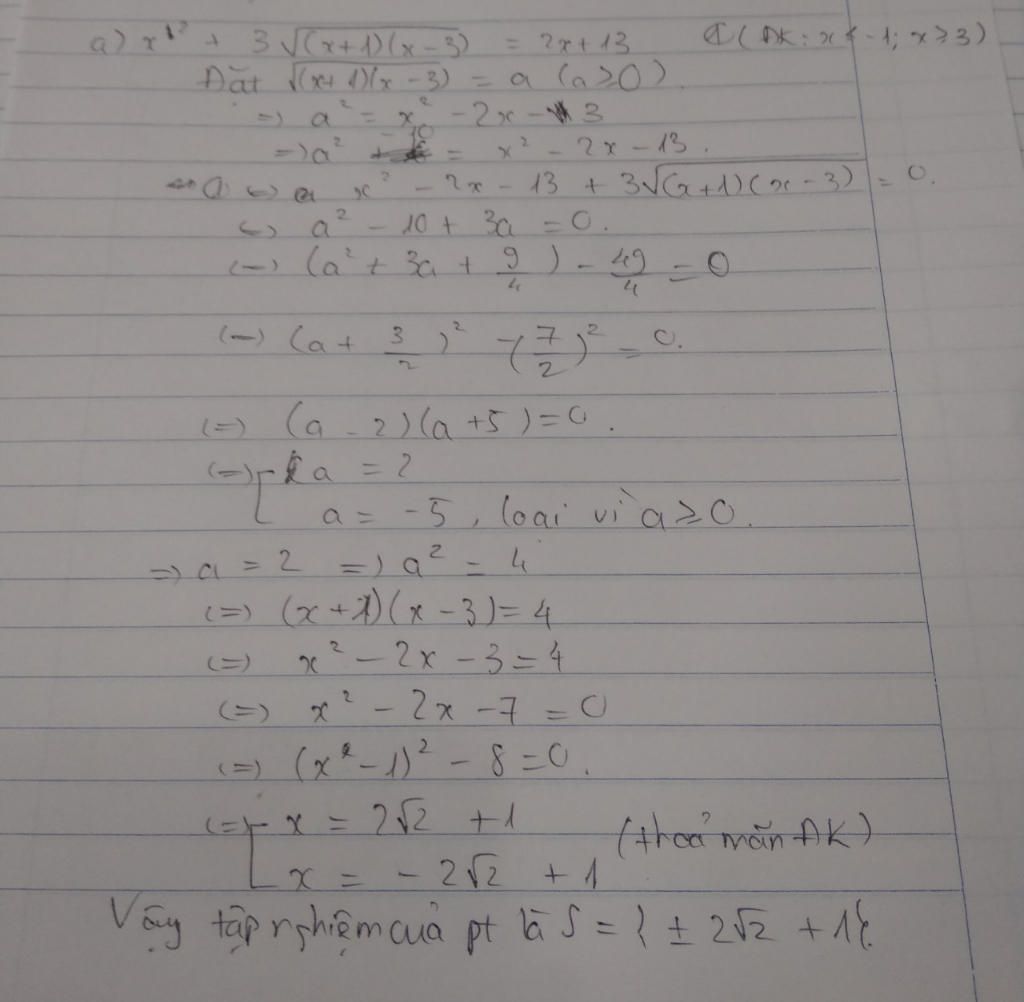 a) x² + 3√((x+1)(x-3)) = 2x+13 ① (ĐK: x ≤ -1; x ≥ 3)
Đặt √((x+1)(x-3)) = a (a ≥ 0)
=> a² = x² - 2x - 3
=> a² - 10 = x² - 2x - 13.
① <=> x² - 2x - 13 + 3√((x+1)(x-3)) = 0.
<=> a² - 10 + 3a = 0.
<=> (a² + 3a + 9/4) - 49/4 = 0
<=> (a + 3/2)² - (7/2)² = 0.
<=> (a - 2)(a + 5) = 0.
<=> [ a = 2
a = -5, loại vì a ≥ 0.
=> a = 2 => a² = 4
<=> (x+1)(x-3) = 4
<=> x² - 2x - 3 = 4
<=> x² - 2x - 7 = 0
<=> (x - 1)² - 8 = 0.
<=> [ x = 2√2 + 1
(thoả mãn ĐK)
x = -2√2 + 1
Vậy tập nghiệm của pt là S = { ± 2√2 + 1}.